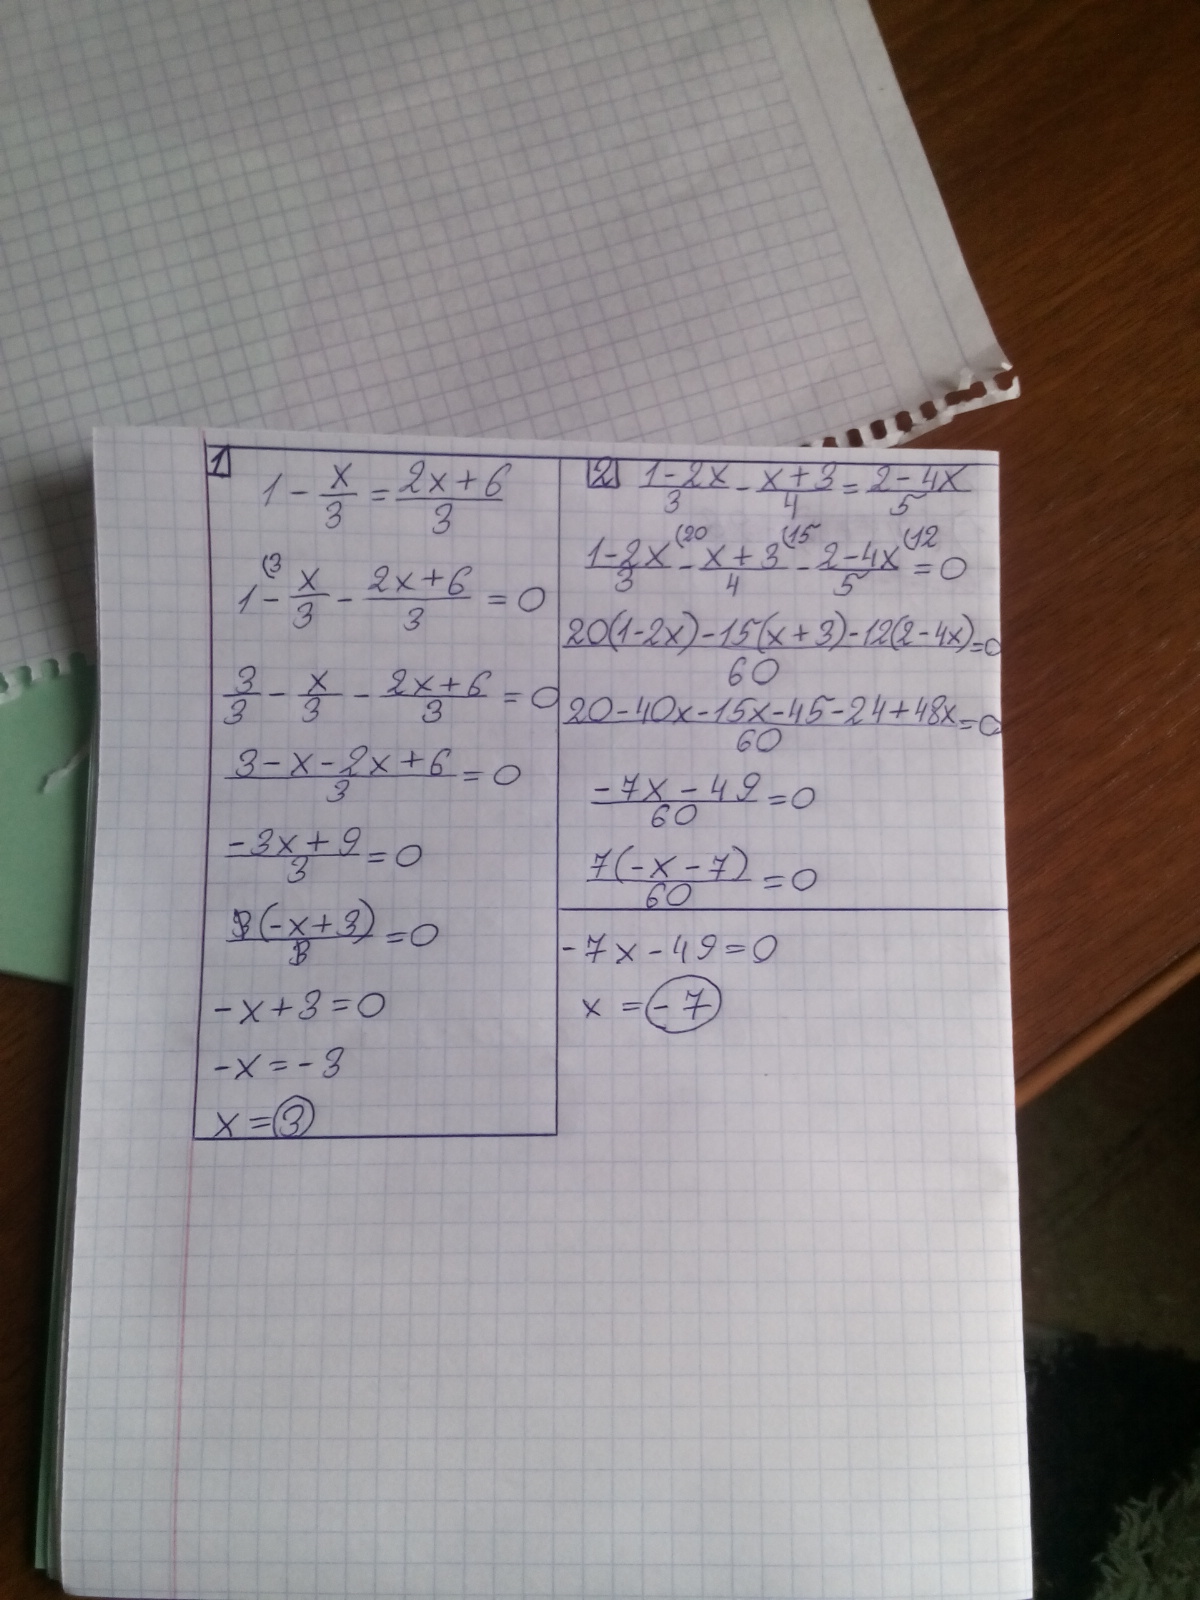 1
1 - x/3 = (2x+6)/3
1(3 - x/3 - (2x+6)/3 = 0
3/3 - x/3 - (2x+6)/3 = 0
(3-x-2x+6)/3 = 0
(-3x+9)/3 = 0
3(-x+3)/3 = 0
-x+3=0
-x=-3
x=3
2 (1-2x)/3 - (x+3)/4 = (2-4x)/5
(1-2x)/3 (20 - (x+3)/4 (15 - (2-4x)/5 (12 = 0
(20(1-2x)-15(x+3)-12(2-4x))/60 = 0
(20-40x-15x-45-24+48x)/60 = 0
(-7x-49)/60 = 0
7(-x-7)/60 = 0
-7x-49=0
x=-7